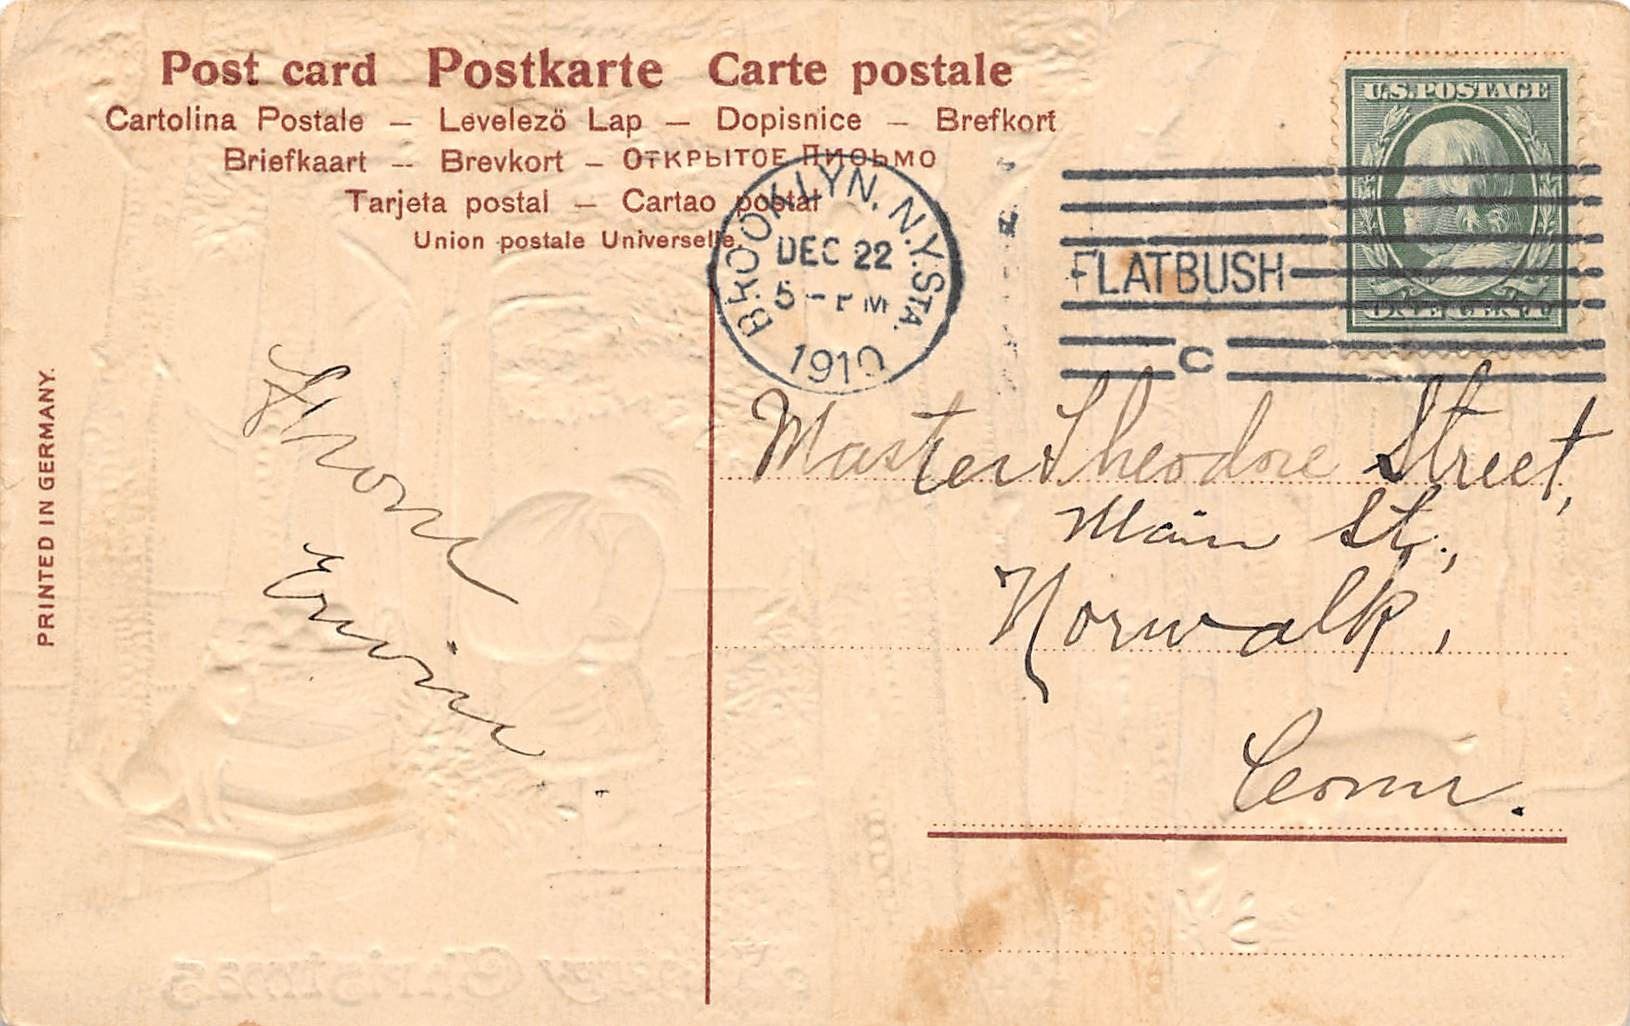 Post card Postkarte Carte postale
Cartolina Postale — Levelező Lap — Dopisnice — Brefkort
Briefkaart — Brevkort — Открытое Письмо
Tarjeta postal — Cartao postal
Union postale Universelle.
BROOKLYN, N.Y. STA.
DEC 22
5 - PM
1910
FLATBUSH
C
U.S. POSTAGE
PRINTED IN GERMANY.
From
Ervin
Master Theodore Street,
Main St.,
Norwalk,
Conn.
Christmas